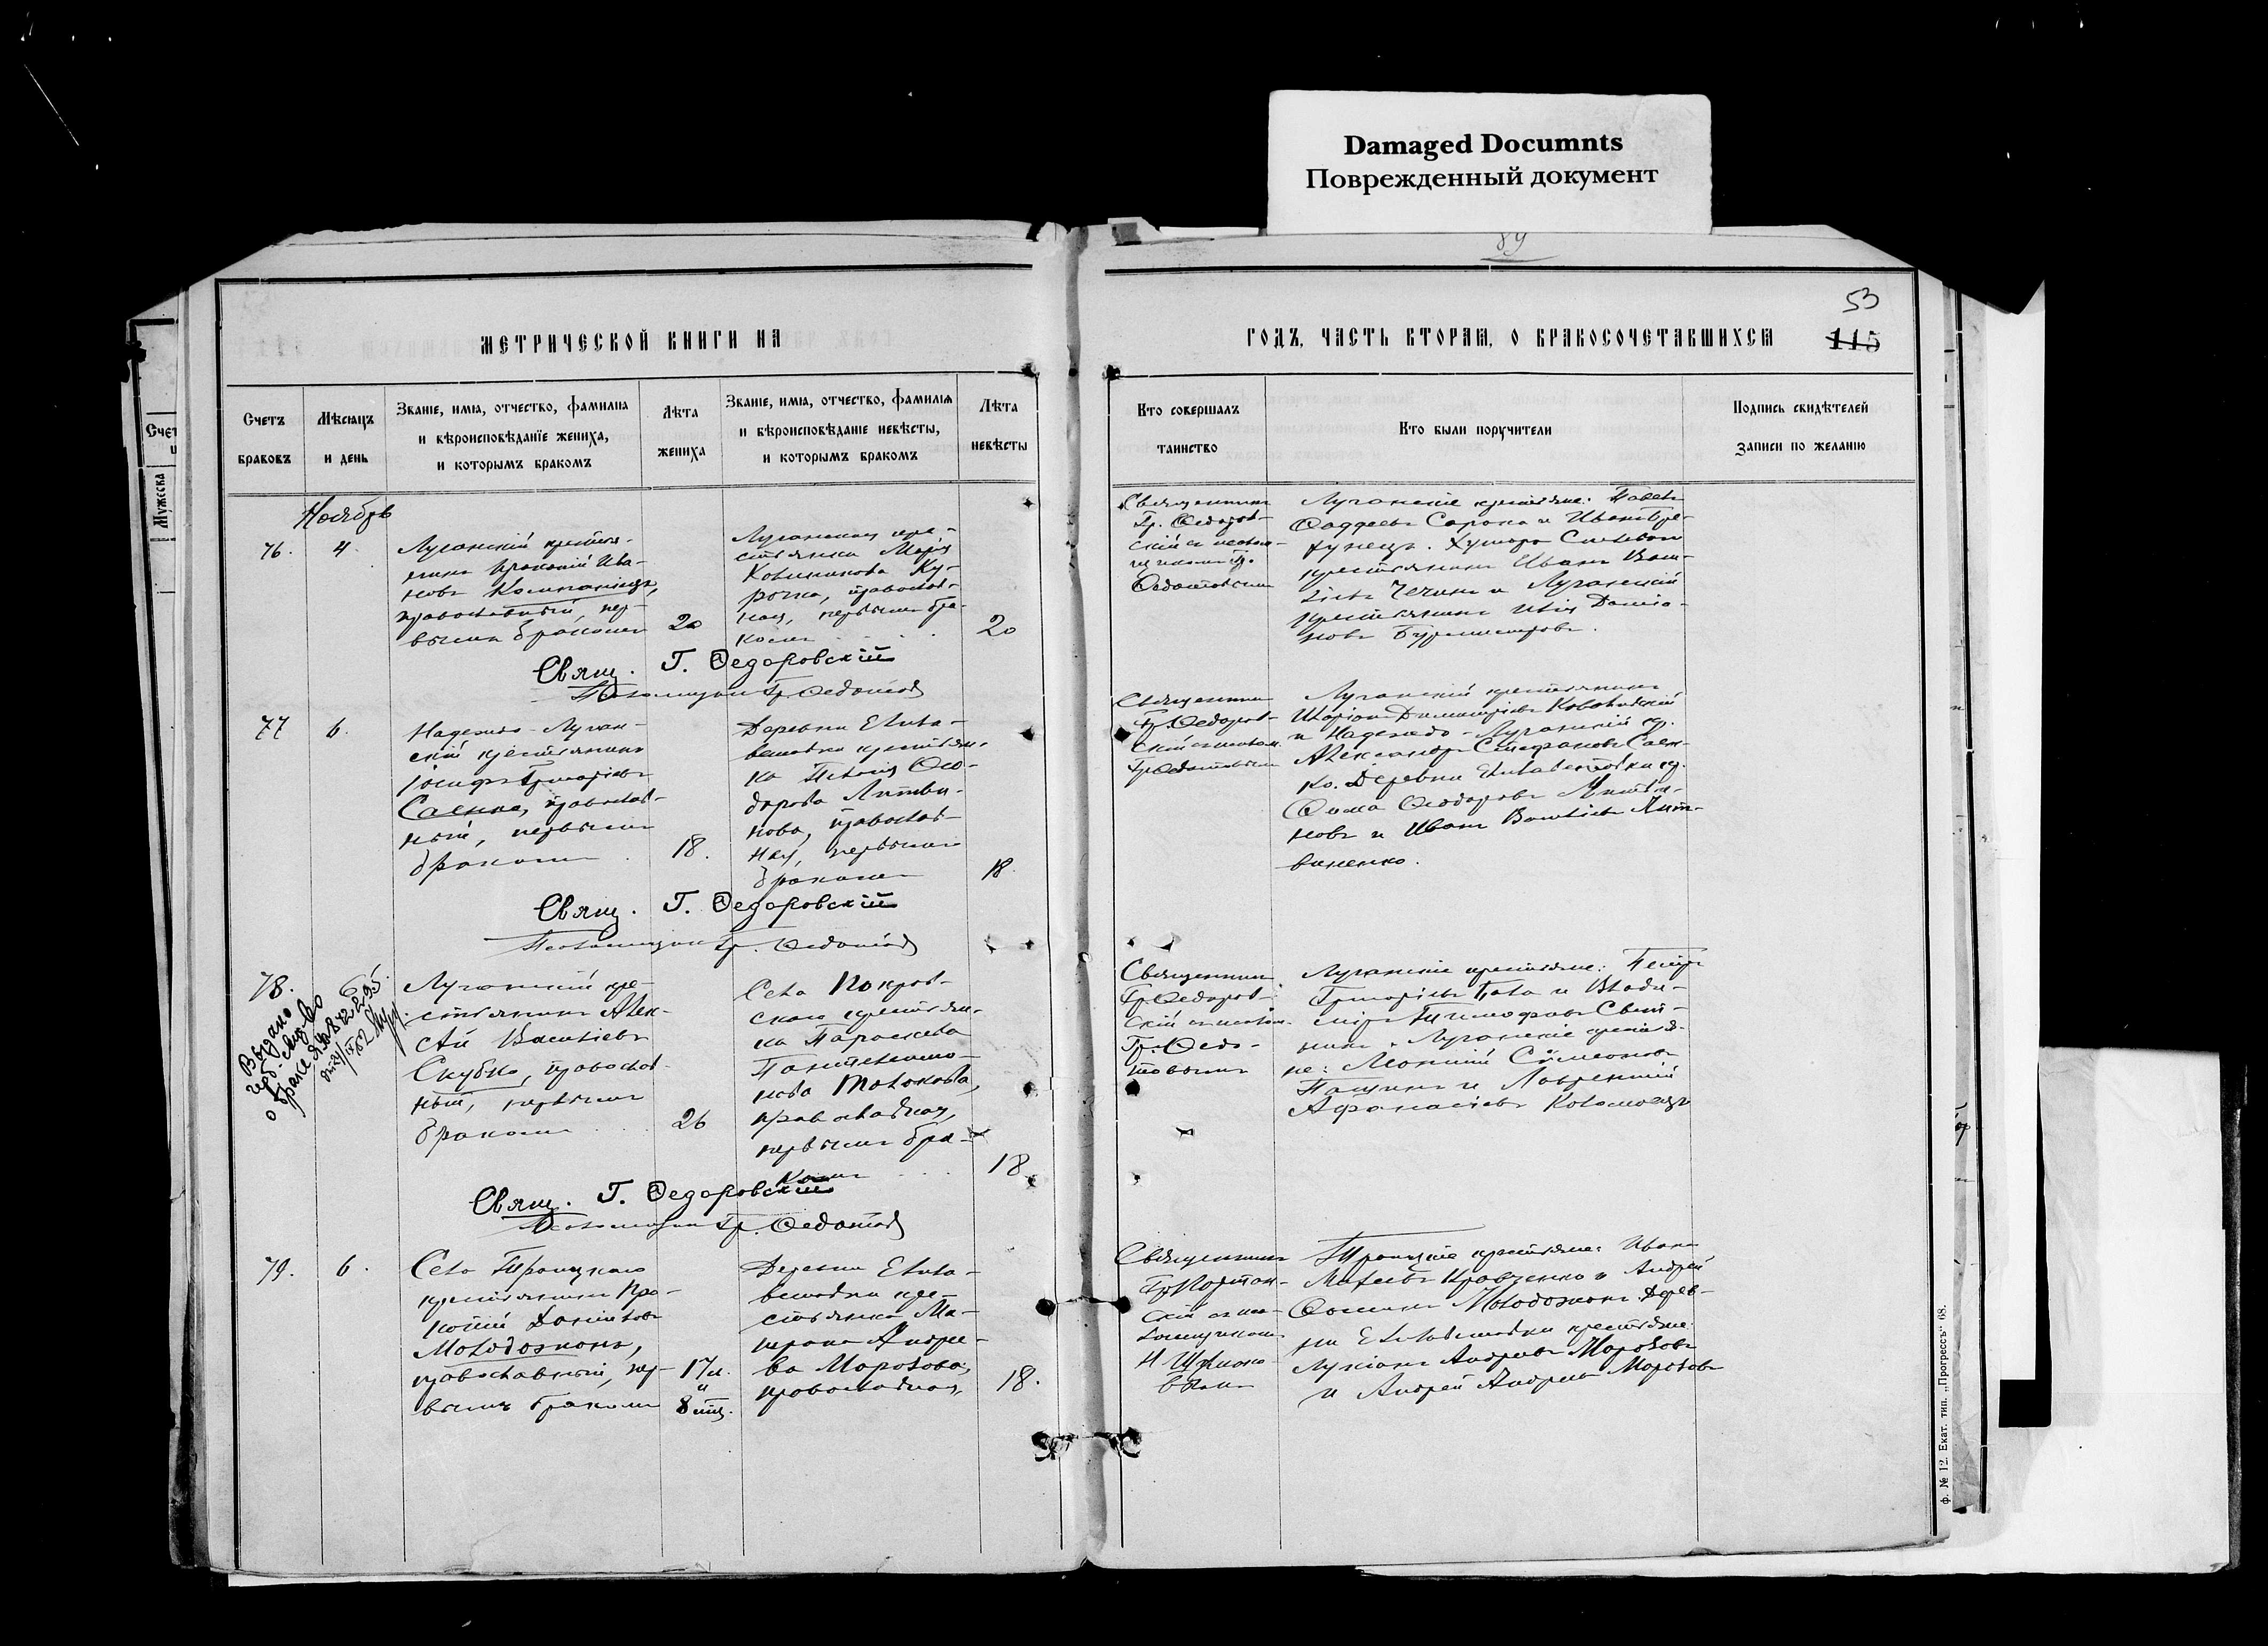 Damaged Documnts
Поврежденный документ
89
53
115
МЕТРИЧЕСКОЙ КНИГИ НА
ГОДЪ, ЧАСТЬ ВТОРАЯ, О БРАКОСОЧЕТАВШИХСЯ
Счетъ
браковъ
Мѣсяцъ
и день
Званіе, имя, отчество, фамилія
и вѣроисповѣданіе жениха,
и которымъ бракомъ
Лѣта
жениха
Званіе, имя, отчество, фамилія
и вѣроисповѣданіе невѣсты,
и которымъ бракомъ
Лѣта
невѣсты
Кто совершалъ
таинство
Кто были поручители
Подпись свидѣтелей
записи по желанію
Ноябрь
76.
4.
Луганскій крестья-
нинъ Ива-
новъ Компаніецъ,
православный, пер-
вымъ бракомъ
20
Луганская кре-
стьянка Марія
Ку-
рочка, православ-
ная, первымъ бра-
комъ
20
Священникъ
Гр. Ѳедоров-
скій съ псалом-
щикомъ Гр.
Ѳедотовымъ
Луганскіе крестьяне: Павелъ
Ѳаддеевъ Сорока и Иванъ
Хутора
крестьянинъ Иванъ Васи-
ліевъ и Луганскій
крестьянинъ Илія Даміа-
новъ Бурмистровъ.
Свящ. Г. Ѳедоровскій
Псаломщикъ Гр. Ѳедотовъ
77
6.
Надеждо-Луган-
скій крестьянинъ
Іосифъ Григоріевъ
Саенко, православ-
ный, первымъ
бракомъ
18.
Деревни Елиза-
ветовки крестьян-
ка Пелагія Ѳео-
дорова Литви-
нова, православ-
ная, первымъ
бракомъ
18.
Священникъ
Гр. Ѳедоров-
скій съ псалом.
Гр. Ѳедотовымъ
Луганскій крестьянинъ
Иларіонъ Димитріевъ
и Надеждо-Луганскій кр.
Александръ Стефановъ Саен-
ко. Деревни Елизаветовки кр.
Ѳома Ѳеодоровъ Литви-
новъ и Иванъ Васильевъ Лит-
виненко.
Свящ. Г. Ѳедоровскій
Псаломщикъ Гр. Ѳедотовъ
78.
6.
Выдано
о браке
Луганскій кре-
стьянинъ Алек-
сѣй Васильевъ
Скубко, православ-
ный, первымъ
бракомъ
26
Села Покров-
скаго крестьян-
ка Параскева
Пантелеимо-
нова Толокова,
православная,
первымъ бра-
комъ
18.
Священникъ
Гр. Ѳедоров-
скій съ псалом.
Гр. Ѳедо-
товымъ
Луганскіе крестьяне: Петръ
Григоріевъ и Влади-
міръ Тимофѣевъ
Луганскіе крестья-
не: Симеоновъ
и Лаврентій
Аѳанасіевъ Коломоецъ
Свящ. Г. Ѳедоровскій
Псаломщикъ Гр. Ѳедотовъ
79.
6.
Села Троицкаго
крестьянинъ Про-
копій Даніиловъ
Молодожонъ,
православный, пер-
вымъ бракомъ
17 л.
и
8 мц.
Деревни Елиза-
ветовки кре-
стьянка Ма-
трона Андре-
ева Морозова,
православная,
18.
Священникъ
скій съ пса-
ломщикомъ
Троицкіе крестьяне: Иванъ
Матѳеевъ Кравченко и Андрей
Ѳоминъ Молодожонъ. Дерев-
ни Елизаветовки крестьяне:
Лукіанъ Андреевъ Морозовъ
и Андрей Андреевъ Морозовъ
Ф. № 12. Екат. тип. „Прогрессъ“ 68.